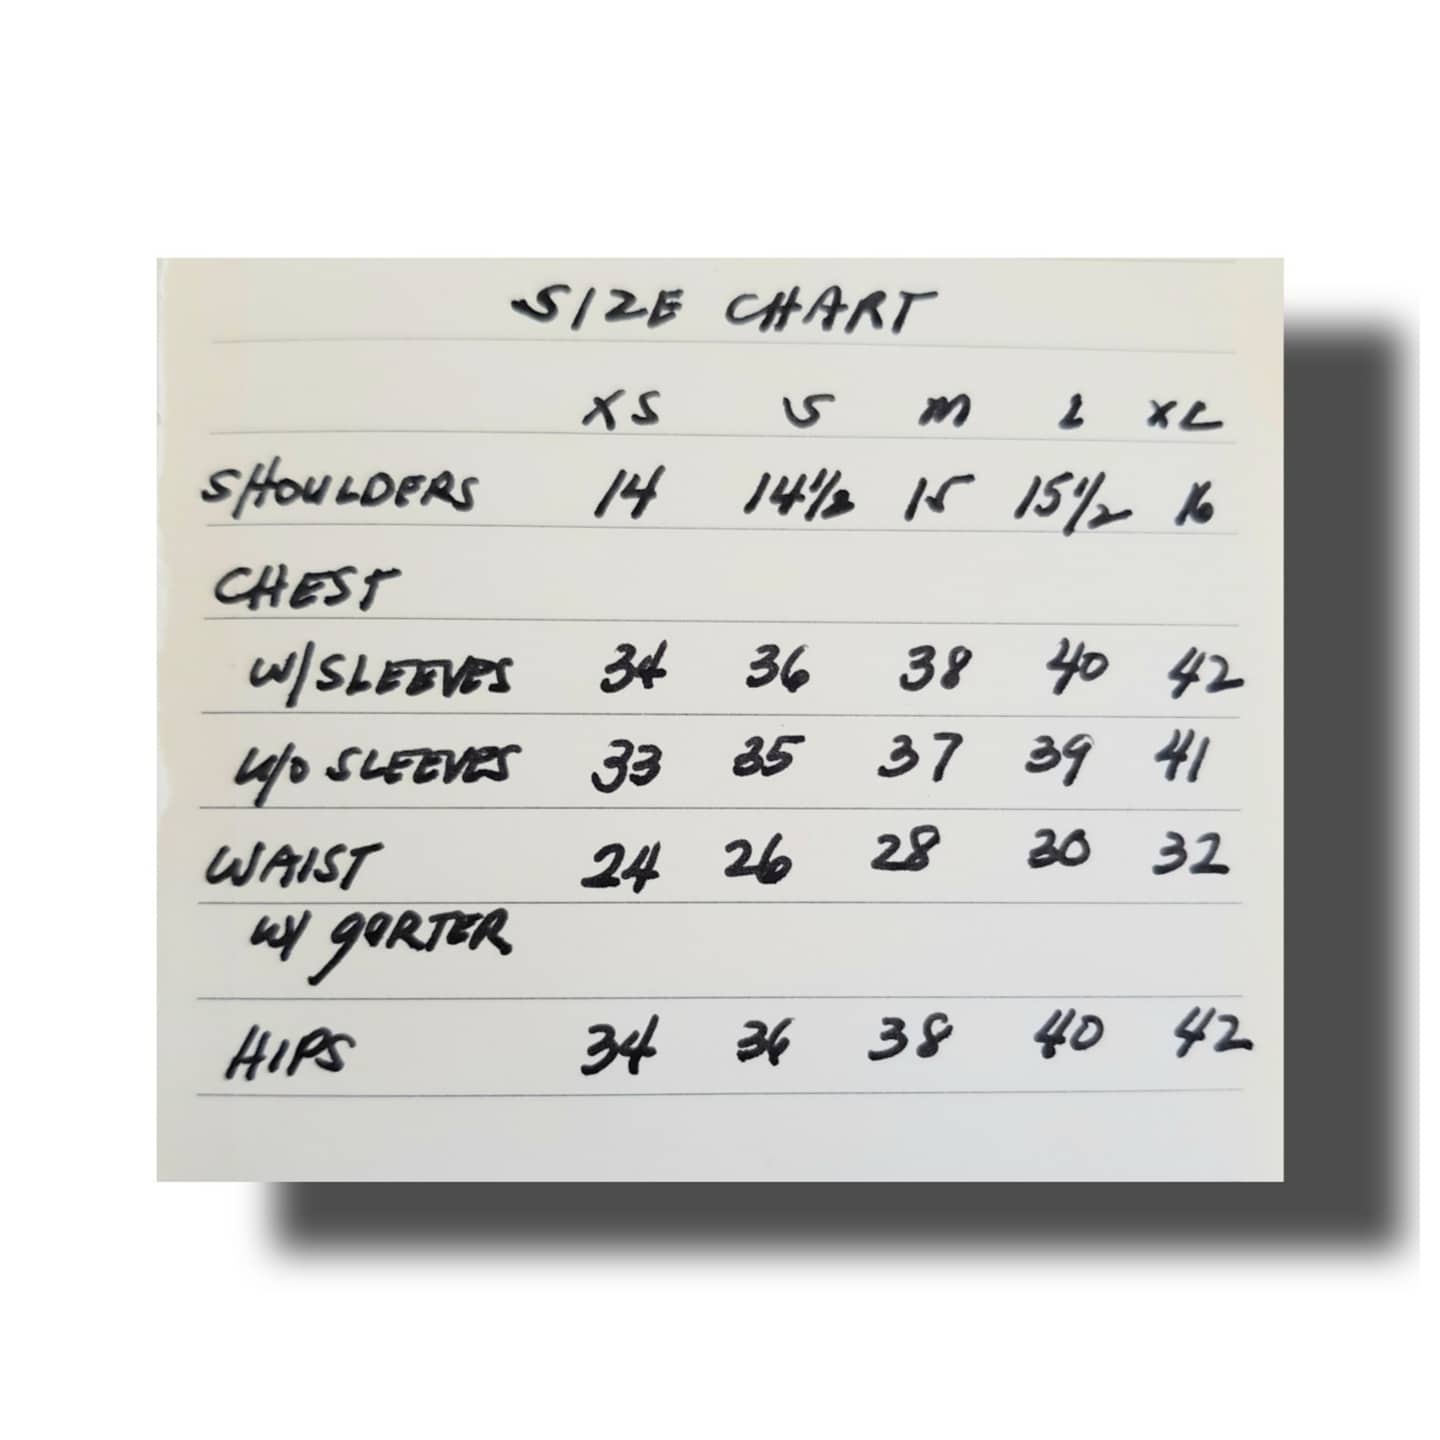 SIZE CHART
XS S M L XL
SHOULDERS 14 14½ 15 15½ 16
CHEST
W/SLEEVES 34 36 38 40 42
W/O SLEEVES 33 35 37 39 41
WAIST 24 26 28 30 32
W/ GARTER
HIPS 34 36 38 40 42